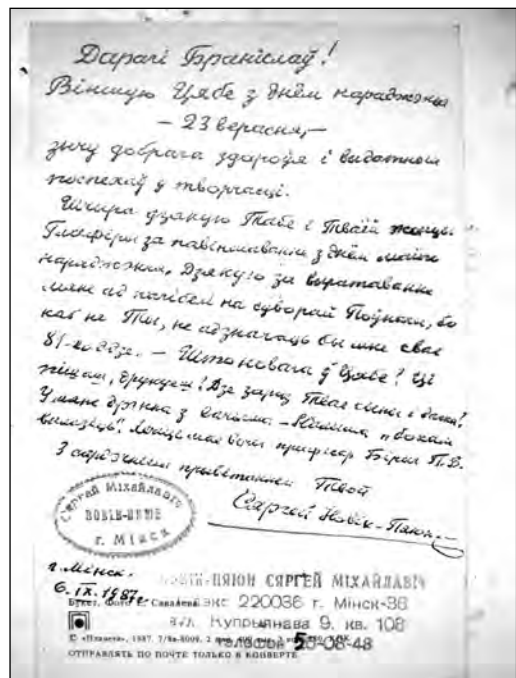 Дарагі Браніслаў!
Віншую Цябе з днём нараджэння
— 23 верасня, —
зычу добрага здароўя і выдатных
поспехаў у творчасці.
Шчыра дзякую Табе і Тваёй жонцы
Глафіры за павіншаванне з днём майго
нараджэння. Дзякую за выратаванне
мяне ад пагібелі на суворай Поўначы, бо
каб не Ты, не адзначаць бы мне свае
81-годдзе. — Што новага ў Цябе? Ці
пішаш, друкуеш? Дзе зараз Твае сыны і дачка?
У мяне дрэнна з вачыма. —
вылазіць". Лечыць мае вочы прафесар Бірыч П.В.
З сардэчным прывітаннем Твой
Сяргей Новік-Пяюн
Сяргей Міхайлавіч
НОВІК-ПЯЮН
г. Мінск
г. Мінск.
6.IX.1987г.
НОВІК-ПЯЮН СЯРГЕЙ МІХАЙЛАВІЧ
Букет. Фото Е. Савалева
220036 г. Мінск-36
вул. Купрыянава 9. кв. 108
© «Планета», 1987.
Телефон 56-08-48
ОТПРАВЛЯТЬ ПО ПОЧТЕ ТОЛЬКО В КОНВЕРТЕ